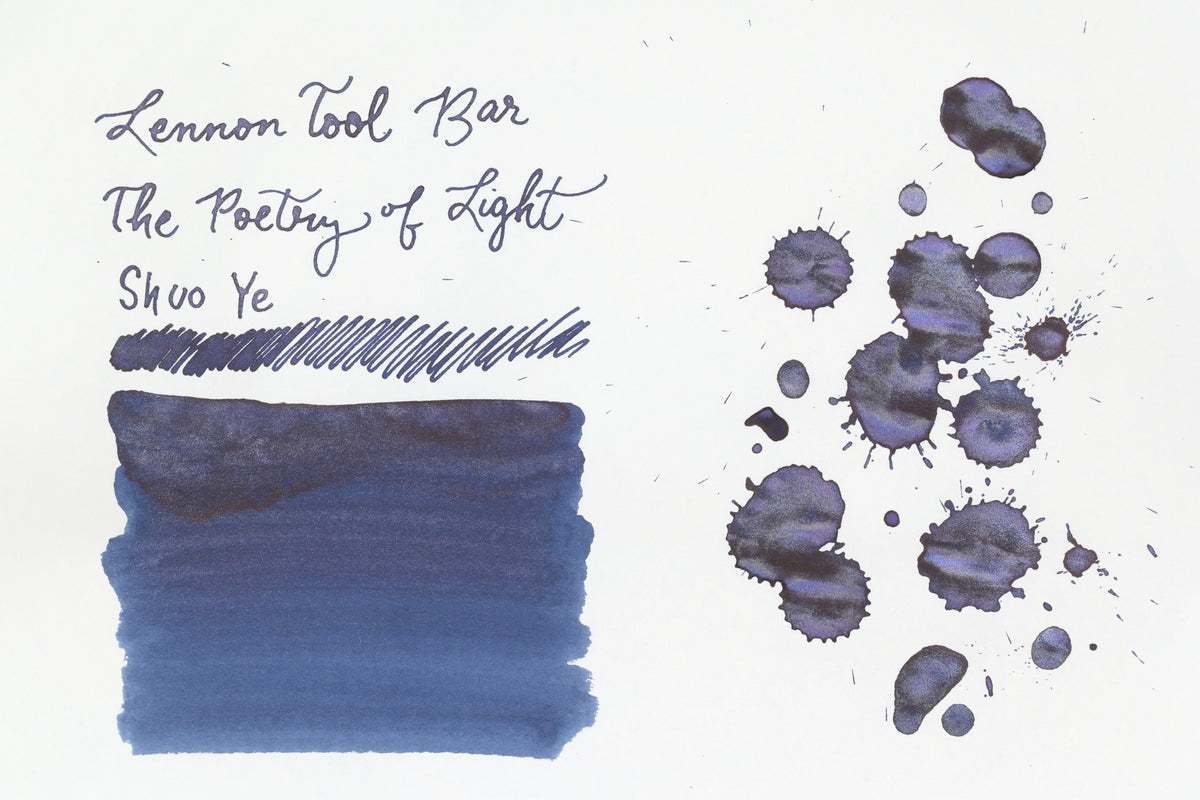 Lennon Tool Bar
The Poetry of Light
Shuo Ye